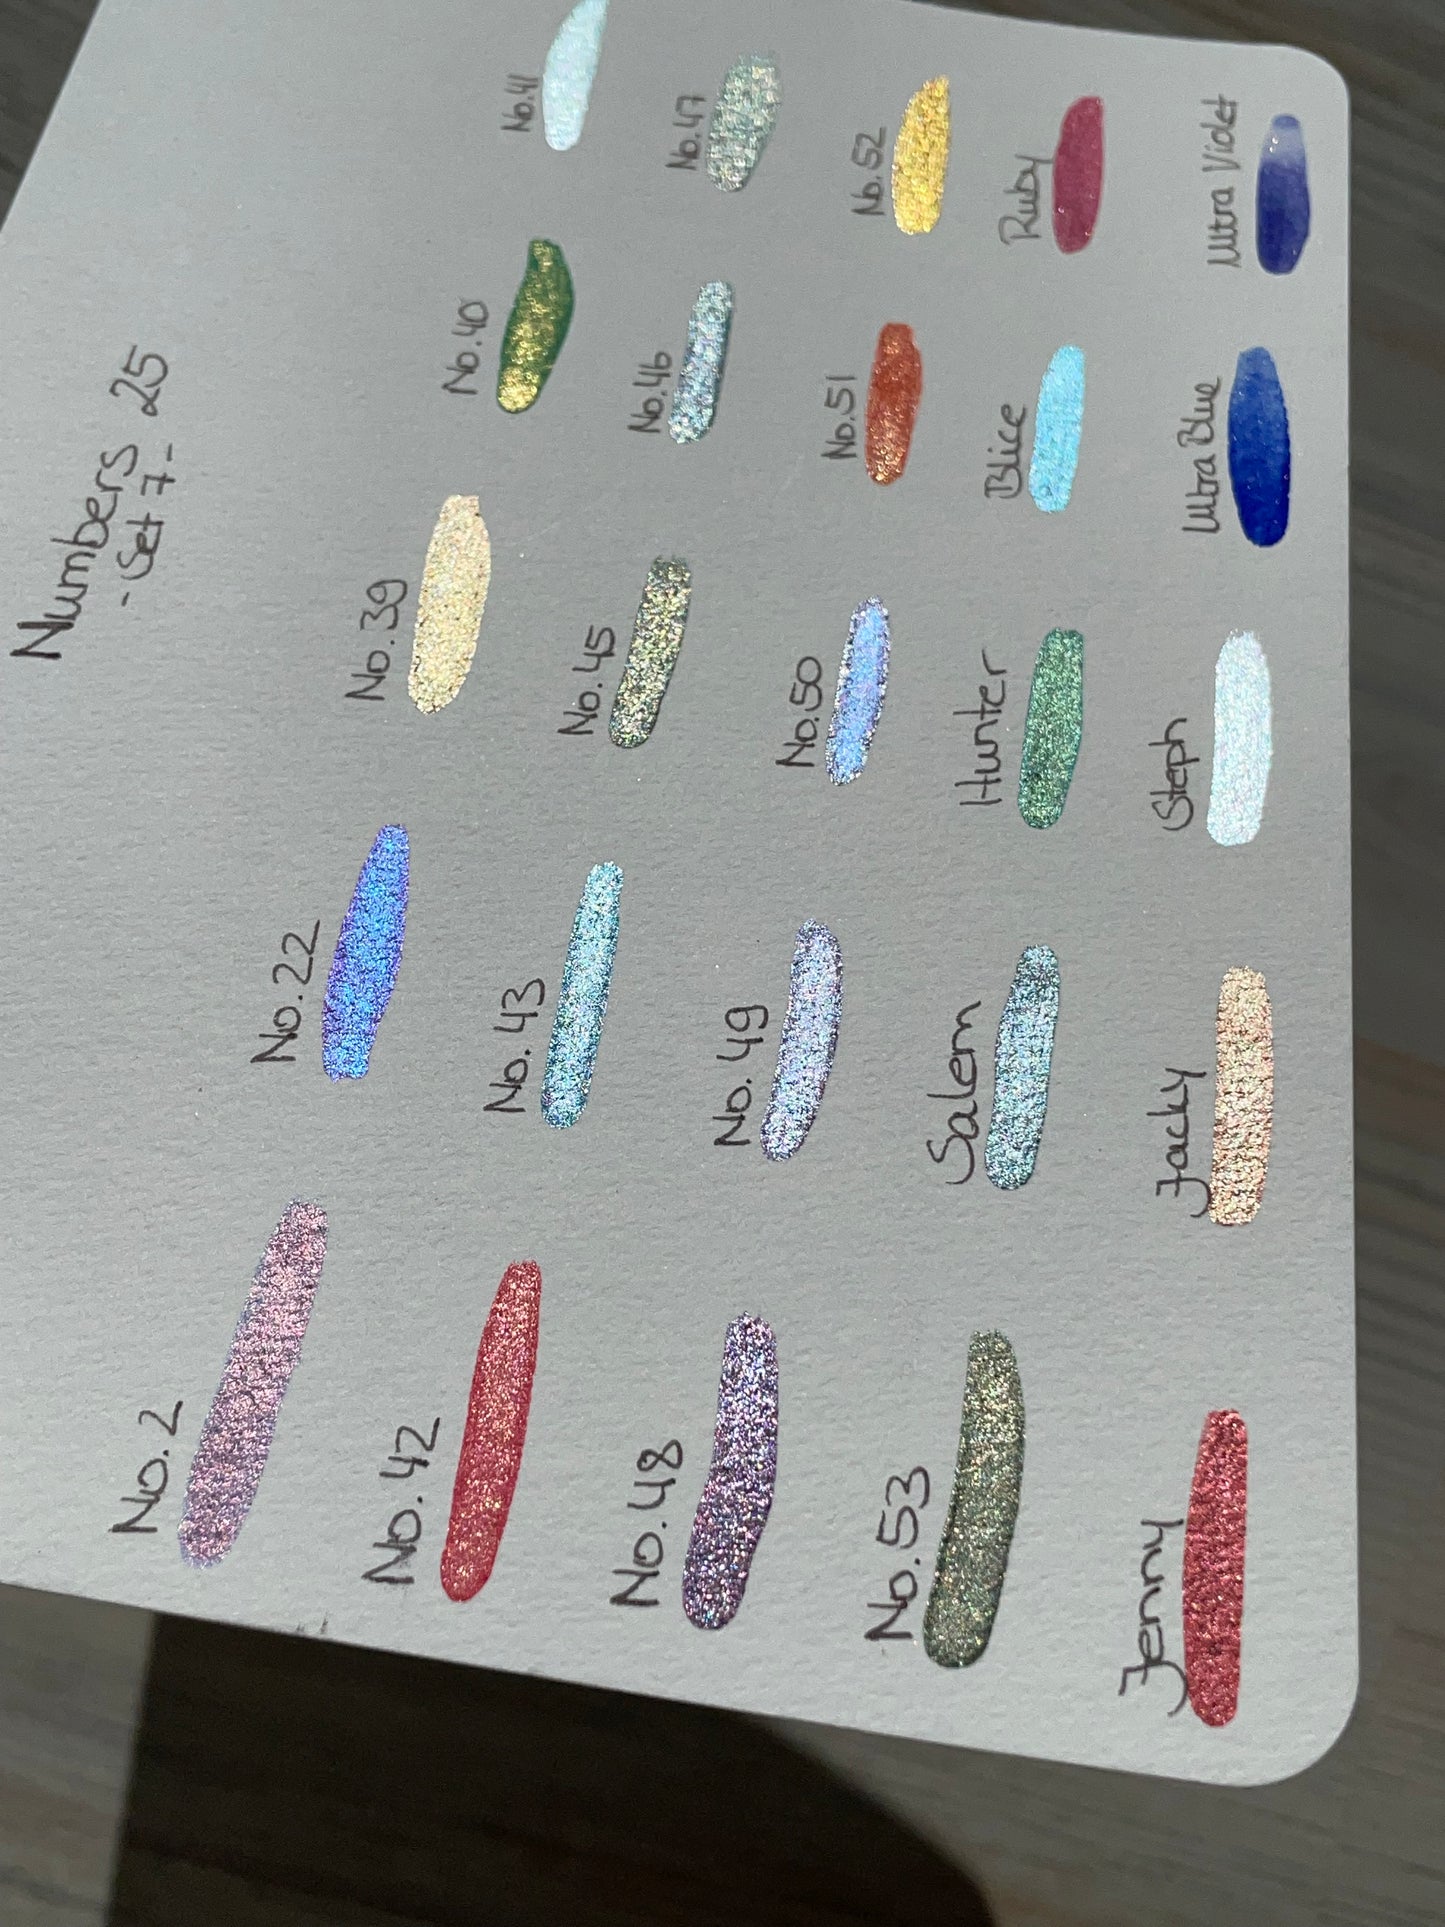 Numbers 25
- Set 7 -
No. 2
No. 22
No. 39
No. 40
No. 41
No. 42
No. 43
No. 45
No. 46
No. 47
No. 48
No. 49
No. 50
No. 51
No. 52
No. 53
Salem
Hunter
Blice
Ruby
Jenny
Jacky
Steph
Ultra Blue
Ultra Violet